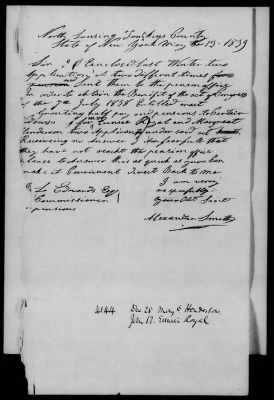 North Lansing Tompkins County
State of New York May the 13 - 1839
Sir I Enclosed Last Winter two
Applications at two different times
Sent them to the pension office
in order to obtain the Benefit of the act of Congress
of the 7th July 1838 Entitled an act
Granting half pay and pensions to certain
for Eunice Royal and Margaret
Henderson two Applicants under said act
Receiving no Answer I Am fearful that
they have not reacht the pension office
please to Answer this as quick as you can
make it Convenient direct Back to me
I am very
respectfully
To Edwards Esqr
Your Obt Servt
Commissioner
pensions
Alexander Smith
Dec 28 May 6 Henderson
John R. Eunice Royal